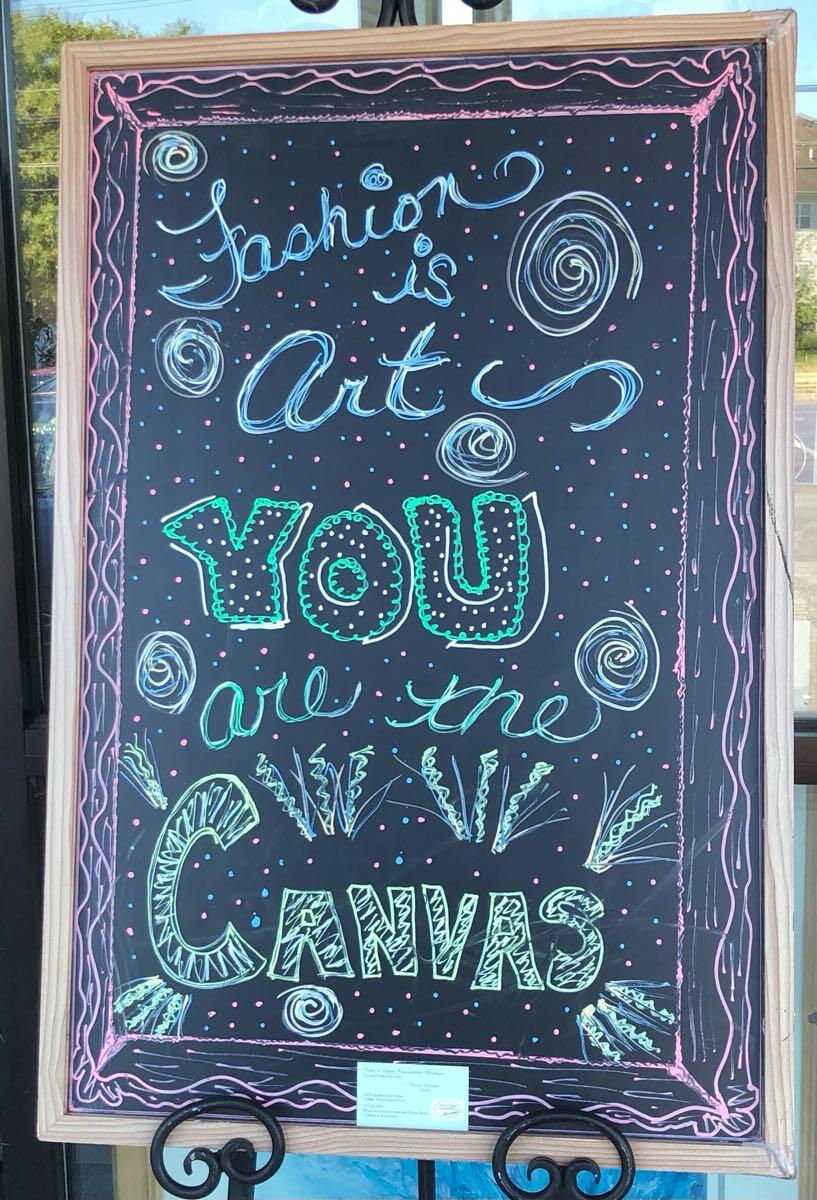 Fashion
is
Art
YOU
are the
CANVAS